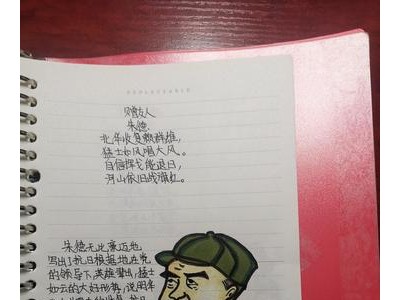 赠友人
朱德
北华收复赖群雄，
猛士如风唱大风。
自信挥戈能退日，
河山依旧战旗红。
朱德无比豪迈地
写出了抗日根据地在党
的领导下，英雄辈出，猛士
如云的大好形势，说明